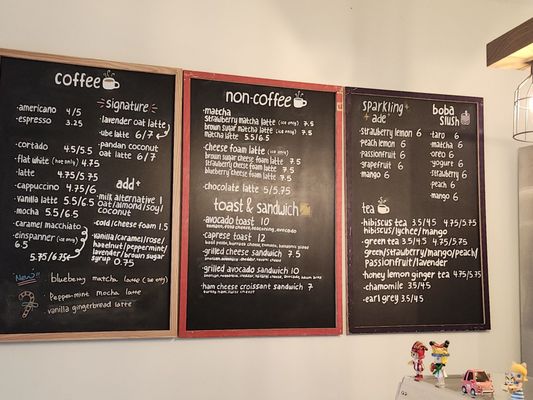 coffee
·americano 4/5
·espresso 3.25
·cortado 4.5/5.5
·flat white (hot only) 4.75
·latte 4.75/5.75
·cappuccino 4.75/6
·vanilla latte 5.5/6.5
·mocha 5.5/6.5
·caramel macchiato
·einspanner (ice only)
6.5
5.75/6.75
New!!
blueberry matcha latte (ice only)
·Peppermint mocha latte
·vanilla gingerbread latte
signature
·lavender oat latte
·ube latte 6/7
·pandan coconut
oat latte 6/7
add+
·milk alternative 1
oat/almond/soy/
coconut
·cold/cheese foam 1.5
·vanilla/caramel/rose/
hazelnut/peppermint/
lavender/brown sugar
syrup 0.75
non-coffee
·matcha
strawberry matcha latte (ice only) 7.5
brown sugar matcha latte (ice only) 7.5
matcha latte 5.5/6.5
·cheese foam latte (ice only)
brown sugar cheese foam latte 7.5
strawberry cheese foam latte 7.5
blueberry cheese foam latte 7.5
·chocolate latte 5/5.75
toast & sandwich
·avocado toast 10
·caprese toast 12
·grilled cheese sandwich 7.5
·grilled avocado sandwich 10
·ham cheese croissant sandwich 7
sparkling
ade
·strawberry lemon 6
·peach lemon 6
·passionfruit 6
·grapefruit 6
·mango 6
boba
slush
·taro 6
·matcha 6
·oreo 6
·yogurt 6
·strawberry 6
·peach 6
·mango 6
tea
·hibiscus tea 3.5/4.5 4.75/5.75
hibiscus/lychee/mango
·green tea 3.5/4.5 4.75/5.75
green/strawberry/mango/peach/
passionfruit/lavender
·honey lemon ginger tea 4.75/5.75
·chamomile 3.5/4.5
·earl grey 3.5/4.5